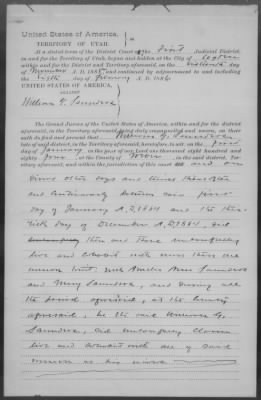 United States of America.
TERRITORY OF UTAH.
At a stated term of the District Court of the First Judicial District,
in and for the Territory of Utah, begun and holden at the City of Ogden
within and for the District and Territory aforesaid, on the day
of November A. D. 1885, and continued by adjournment to and including
the Sixth day of January A. D. 1886
UNITED STATES OF AMERICA,
AGAINST
William G. Saunders
The Grand Jurors of the United States of America, within and for the district
aforesaid, in the Territory aforesaid, being duly empaneled and sworn, on their
oath do find and present that William G. Saunders
late of said district, in the Territory aforesaid, heretofore, to wit: on the first
day of January in the year of our Lord one thousand eight hundred and
eighty four at the County of Weber in the said district, Territory
aforesaid, and within the jurisdiction of this court did and on
divers other days and times thereafter
and continuously between said first
day of January A. D. 1884 and the thir-
tieth day of December A. D. 1884, did
then and there unlawfully
live and cohabit with more than one
woman to wit: with Ann Saunders
and Mary Saunders, and during all
the period aforesaid, at the County
aforesaid, he the said William G.
Saunders, did unlawfully claim
live and cohabit with all of said
women as his wives